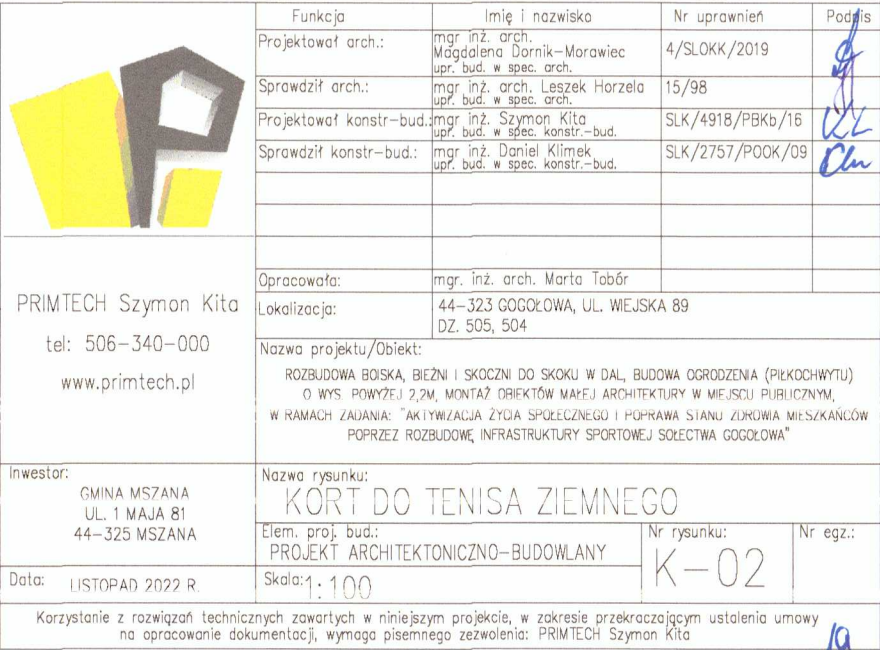 Funkcja Imię i nazwisko Nr uprawnień Podpis
Projektował arch.: mgr inż. arch.
Magdalena Dornik-Morawiec
upr. bud. w spec. arch. 4/SLOKK/2019
Sprawdził arch.: mgr inż. arch. Leszek Horzela
upr. bud. w spec. arch. 15/98
Projektował konstr-bud.: mgr inż. Szymon Kita
upr. bud. w spec. konstr.-bud. SLK/4918/PBKb/16
Sprawdził konstr-bud.: mgr inż. Daniel Klimek
upr. bud. w spec. konstr.-bud. SLK/2757/POOK/09
Opracowała: mgr. inż. arch. Marta Tobór
PRIMTECH Szymon Kita
tel: 506-340-000
www.primtech.pl
Lokalizacja: 44-323 GOGOŁOWA, UL. WIEJSKA 89
DZ. 505, 504
Nazwa projektu/Obiekt:
ROZBUDOWA BOISKA, BIEŻNI I SKOCZNI DO SKOKU W DAL, BUDOWA OGRODZENIA (PIŁKOCHWYTU)
O WYS. POWYŻEJ 2,2M, MONTAŻ OBIEKTÓW MAŁEJ ARCHITEKTURY W MIEJSCU PUBLICZNYM,
W RAMACH ZADANIA: "AKTYWIZACJA ŻYCIA SPOŁECZNEGO I POPRAWA STANU ZDROWIA MIESZKAŃCÓW
POPRZEZ ROZBUDOWĘ INFRASTRUKTURY SPORTOWEJ SOŁECTWA GOGOŁOWA"
Inwestor:
GMINA MSZANA
UL. 1 MAJA 81
44-325 MSZANA
Nazwa rysunku:
KORT DO TENISA ZIEMNEGO
Elem. proj. bud.:
PROJEKT ARCHITEKTONICZNO-BUDOWLANY
Nr rysunku:
K-02
Nr egz.:
Data: LISTOPAD 2022 R.
Skala: 1:100
Korzystanie z rozwiązań technicznych zawartych w niniejszym projekcie, w zakresie przekraczającym ustalenia umowy
na opracowanie dokumentacji, wymaga pisemnego zezwolenia: PRIMTECH Szymon Kita